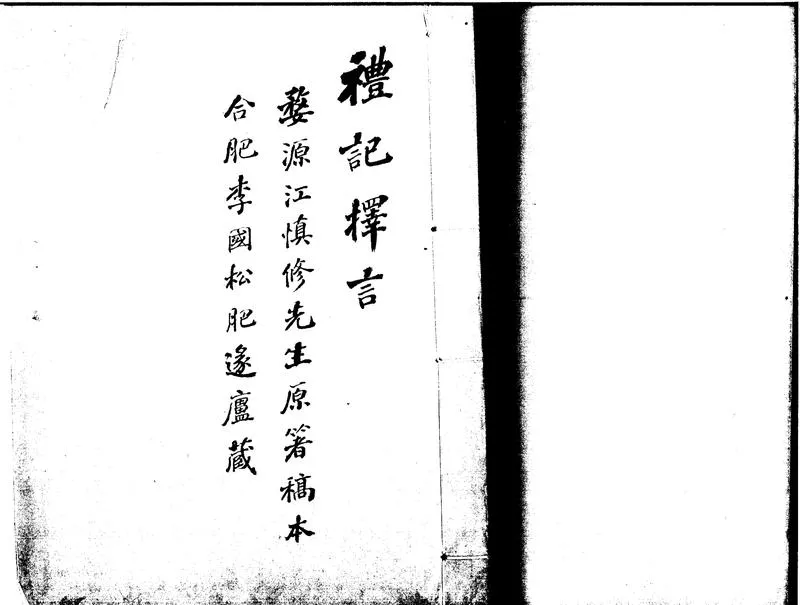 禮記擇言
婺源江慎修先生原箸稿本
合肥李國松肥遯廬藏